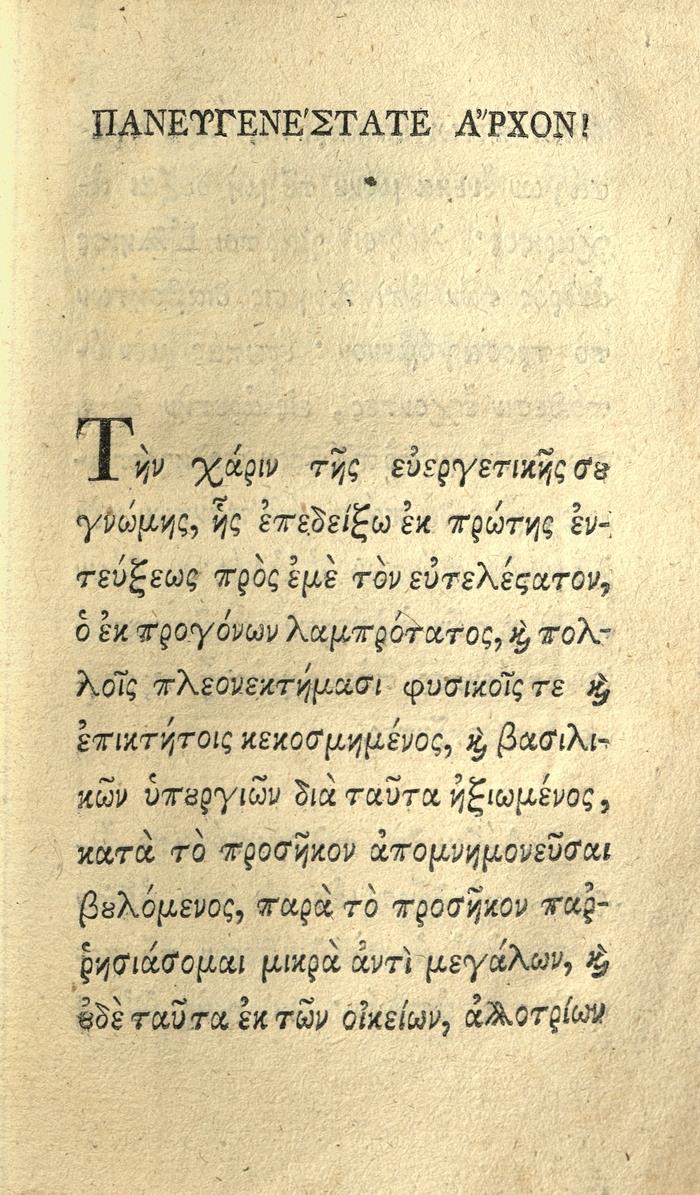 ΠΑΝΕΥΓΕΝΕ'ΣΤΑΤΕ Α"ΡΧΟΝ!
Τὴν χάριν τῆς εὐεργετικῆς σȣ
γνώμης, ἧς ἐπεδείξω ἐκ πρώτης ἐν-
τεύξεως πρὸς ἐμὲ τὸν εὐτελέϛατον,
ὁ ἐκ προγόνων λαμπρότατος, ϗ πολ-
λοῖς πλεονεκτήμασι φυσικοῖς τε ϗ
ἐπικτήτοις κεκοσμημένος, ϗ βασιλι-
κῶν ὑπȣργιῶν διὰ ταῦτα ἠξιωμένος,
κατὰ τὸ προσῆκον ἀπομνημονεῦσαι
βȣλόμενος, παρὰ τὸ προσῆκον παῤ-
ῥησιάσομαι μικρὰ ἀντὶ μεγάλων, ϗ
ȣ̓δὲ ταῦτα ἐκ τῶν οἰκείων, ἀλλοτρίων